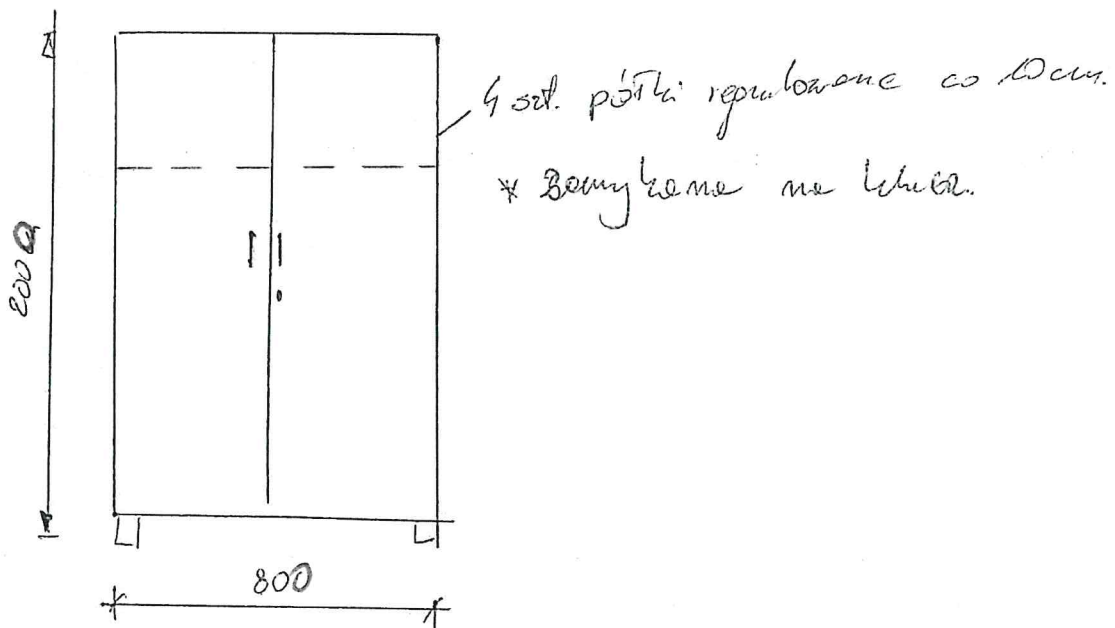 4 szt. półki regulowane co 10cm.
* Zamykana na klucz.
2000
800